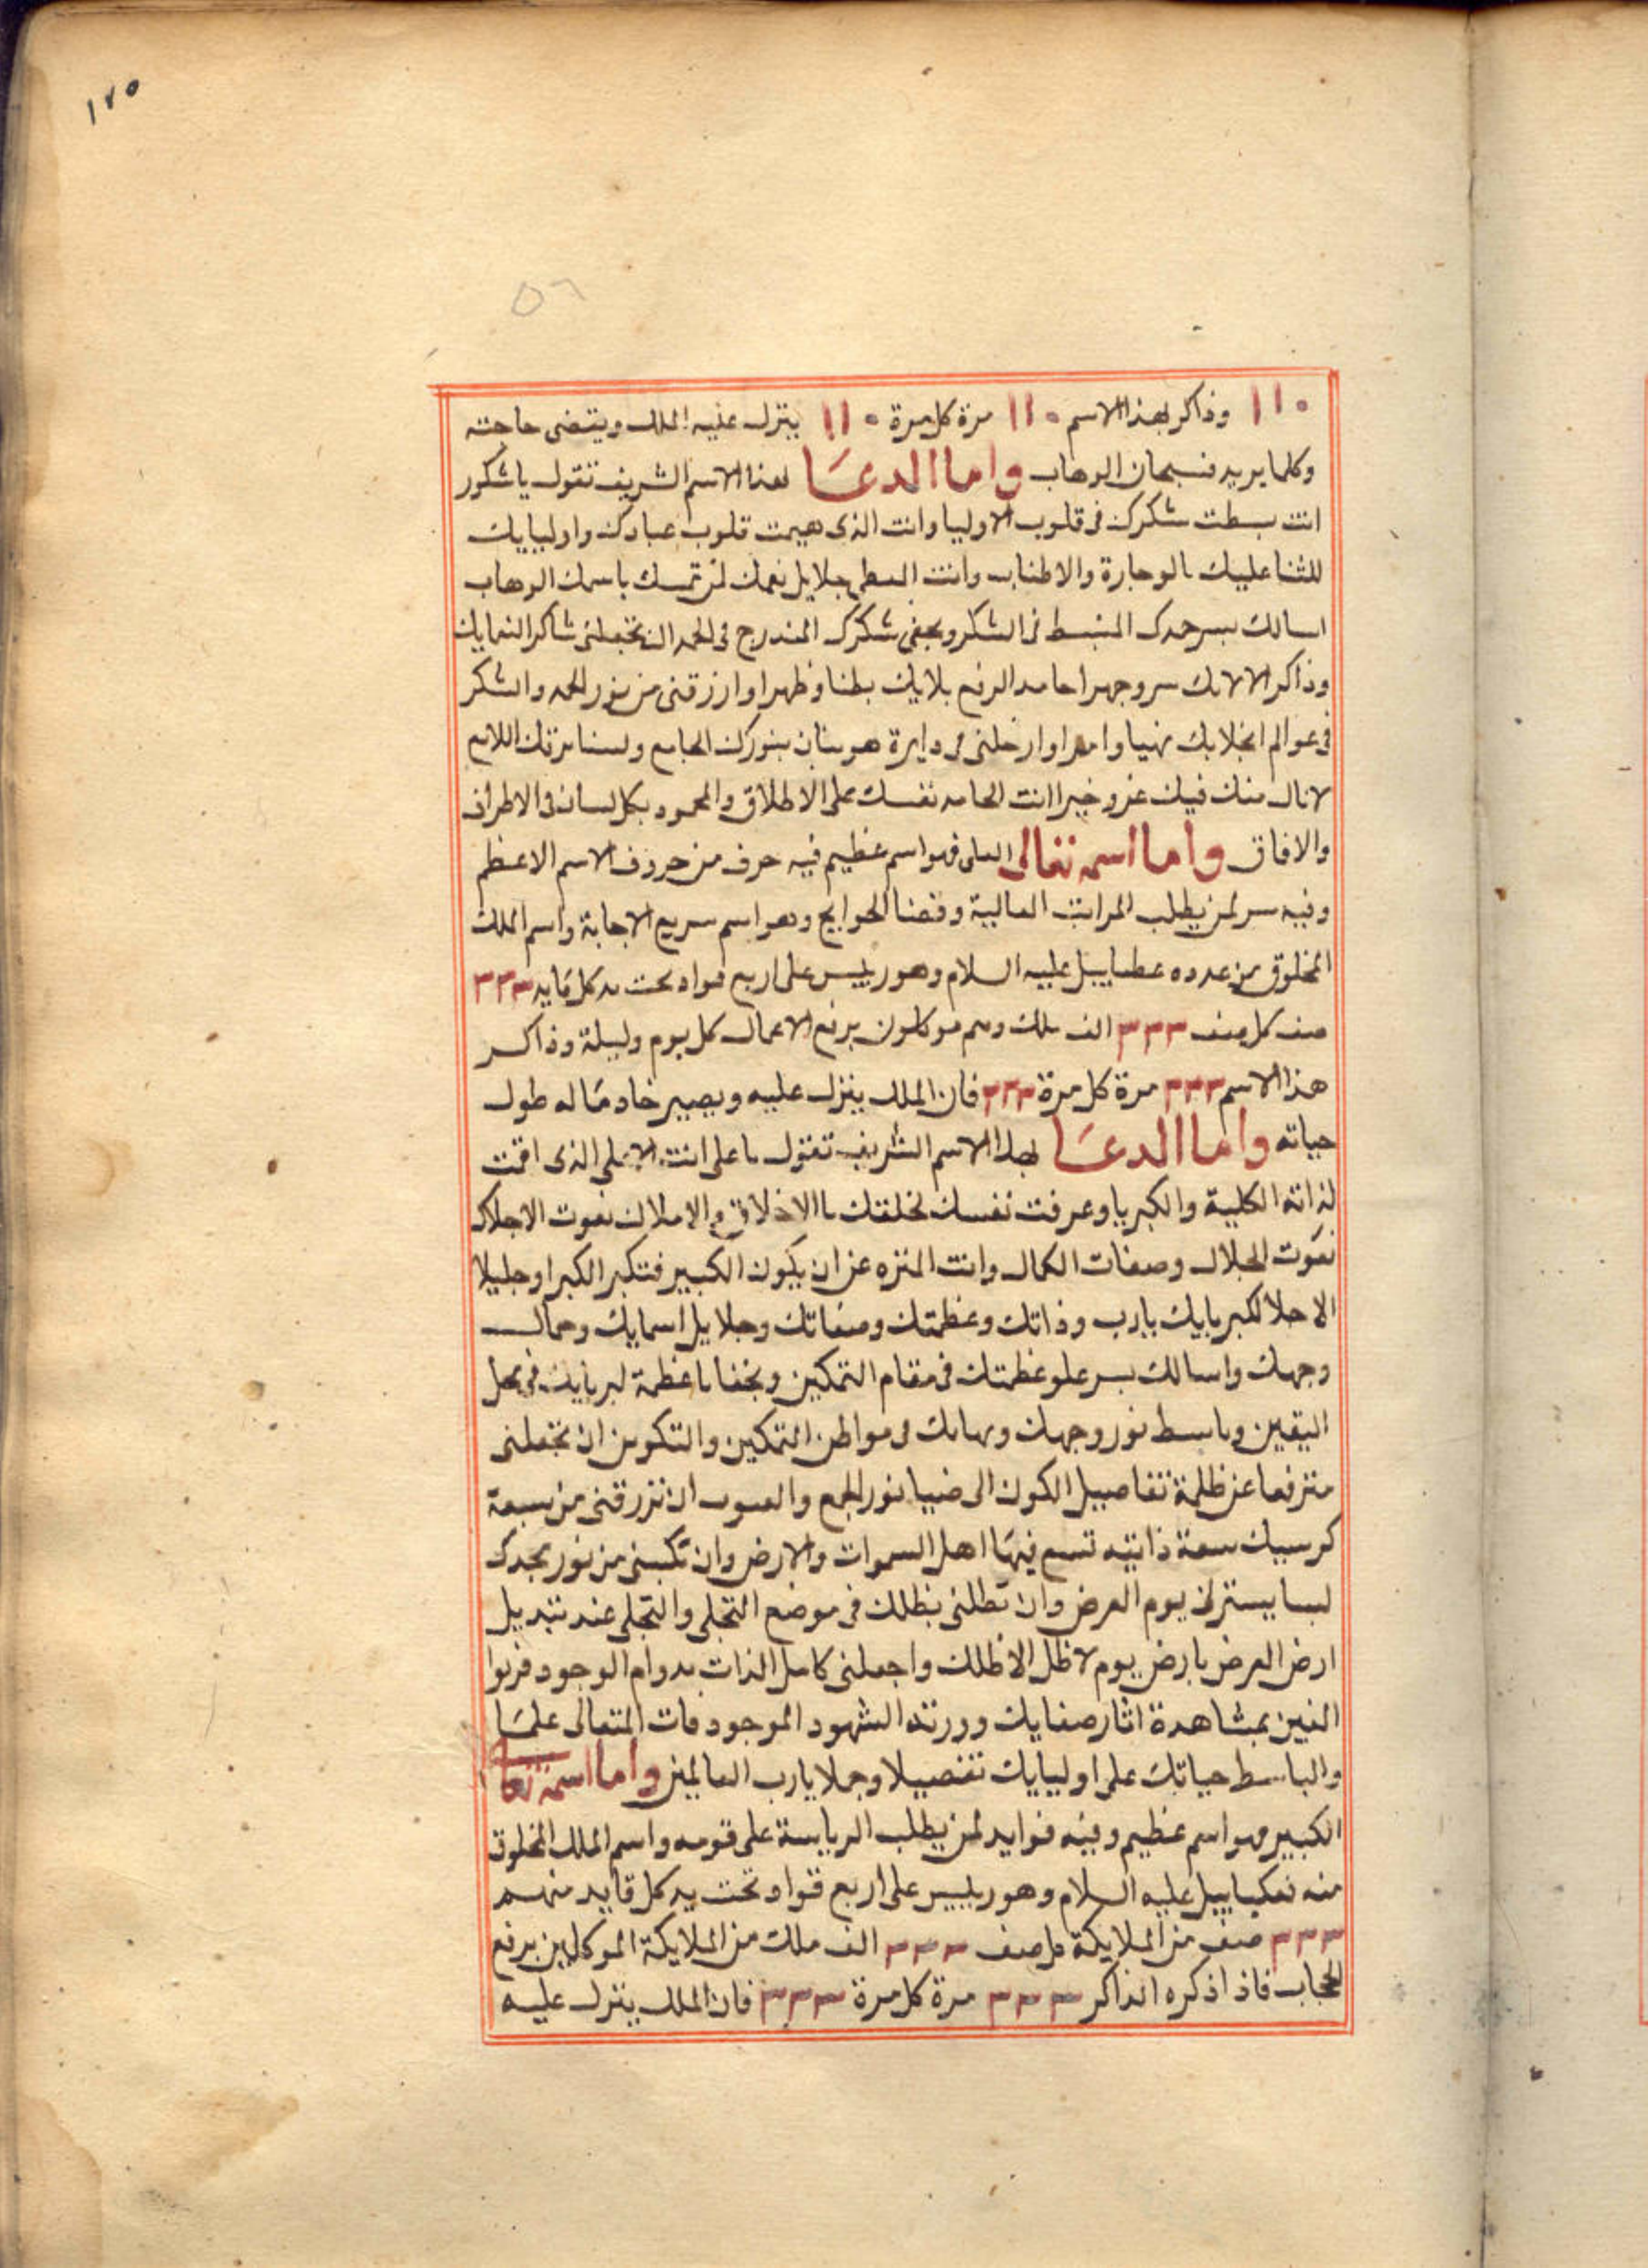 ١٢٥
٥٦
١١٠ وذاكر لهذا الاسم ١١٠ مرة كل مرة ١١٠ يتزل عليه الملك ويقضى حاجته
وكلما يريد فسبحان الوهاب واما الدعا لهذا الاسم الشريف تقول يا شكور
انت بسطت شكرك فى قلوب الاوليا وانت الذى هيمت قلوب عبادك واوليايك
للثنا عليك بالوجازة والاطناب وانت المعطى جلايل نعمك لمن تمسك باسمك الوهاب
اسالك بسر حمدك المنبسط فى الشكر وبخفى شكرك المندرج فى الحمد ان تجعلنى شاكرا لنعمايك
وذاكرا لالايك سر وجهرا حامد الرفع بلايك بطنا وظهرا وارزقنى من نور الحمد والشكر
فى عوالم انجلابك نهيا وامرا وادخلنى فى دايرة بنورك الجامع ولسنا برقك اللامع
لانال منك فيك عز وخيرا انت الحامد نفسك على الاطلاق والمحمود بكل لسان فى الاطراف
والافاق واما اسمه تعالى العلى فهو اسم عظيم فيه حرف من حروف الاسم الاعظم
وفيه سر لمن يطلب المراتب العالية وقضا الحوايج وهو اسم سريع الاجابة واسم الملك
المخلوق من عدده عطياييل عليه السلام وهو رييس على اربع قواد تحت يد كل قايد ٣٣٣
صف كل صف ٣٣٣ الف ملك وهم موكلون برفع الاعمال كل يوم وليلة وذاكر
هذا الاسم ٣٣٣ مرة كل مرة ٣٣٣ فان الملك ينزل عليه ويصير خادما له طول
حياته واما الدعا لهذا الاسم الشريف تقول يا على انت الاعلى الذى اقمت
لذاته الكلية والكبريا وعرفت نفسك لخلقك بالاخلاق والاملاك نعوت الاجلاك
نعوت الجلال وصفات الكمال وانت المنزه عن ان يكون الكبير فتكبر الكبرا وجليلا
الاجلا لكبريايك يارب وذاتك وعظمتك وصفاتك وجلايل اسمايك وجمال
وجهك واسالك بسر علو عظمتك فى مقام التمكين وبخفايا عظمة كبريايك فى محل
اليقين وباسط نور وجهك وبهايك فى مواطن التمكين والتكوين ان تجعلنى
مترفعا عن ظلمة تفاصيل الكون الى ضيا نور الجمع ان ترزقنى من سعة
كرسيك سعة ذاتيه تسع فيها اهل السموات والارض وان تكسنى من نور مجدك
لبسا يسترنى يوم العرض وان تظلنى بظلك فى موضع التخلى والتجلى عند تبديل
ارض العرض بارض يوم لا ظل الا ظلك واجعلنى كامل الذات بدوام الوجود
بمشاهدة اثار صفايك الشهود الموجود فات المتعالى علما
والباسط حياتك على اوليايك تفصيلا وجملا يارب العالمين واما اسمه تعالى
الكبير فهو اسم عظيم وفيه فوايد لمن يطلب الرياسة على قومه واسم الملك المخلوق
منه عليه السلام وهو رييس على اربع قواد تحت يد كل قايد منهم
٣٣٣ صف من الملايكة كل صف ٣٣٣ الف ملك من الملايكة الموكلين برفع
الحجاب فاذا ذكره الذاكر ٣٣٣ مرة كل مرة ٣٣٣ فان الملك يتزل عليه